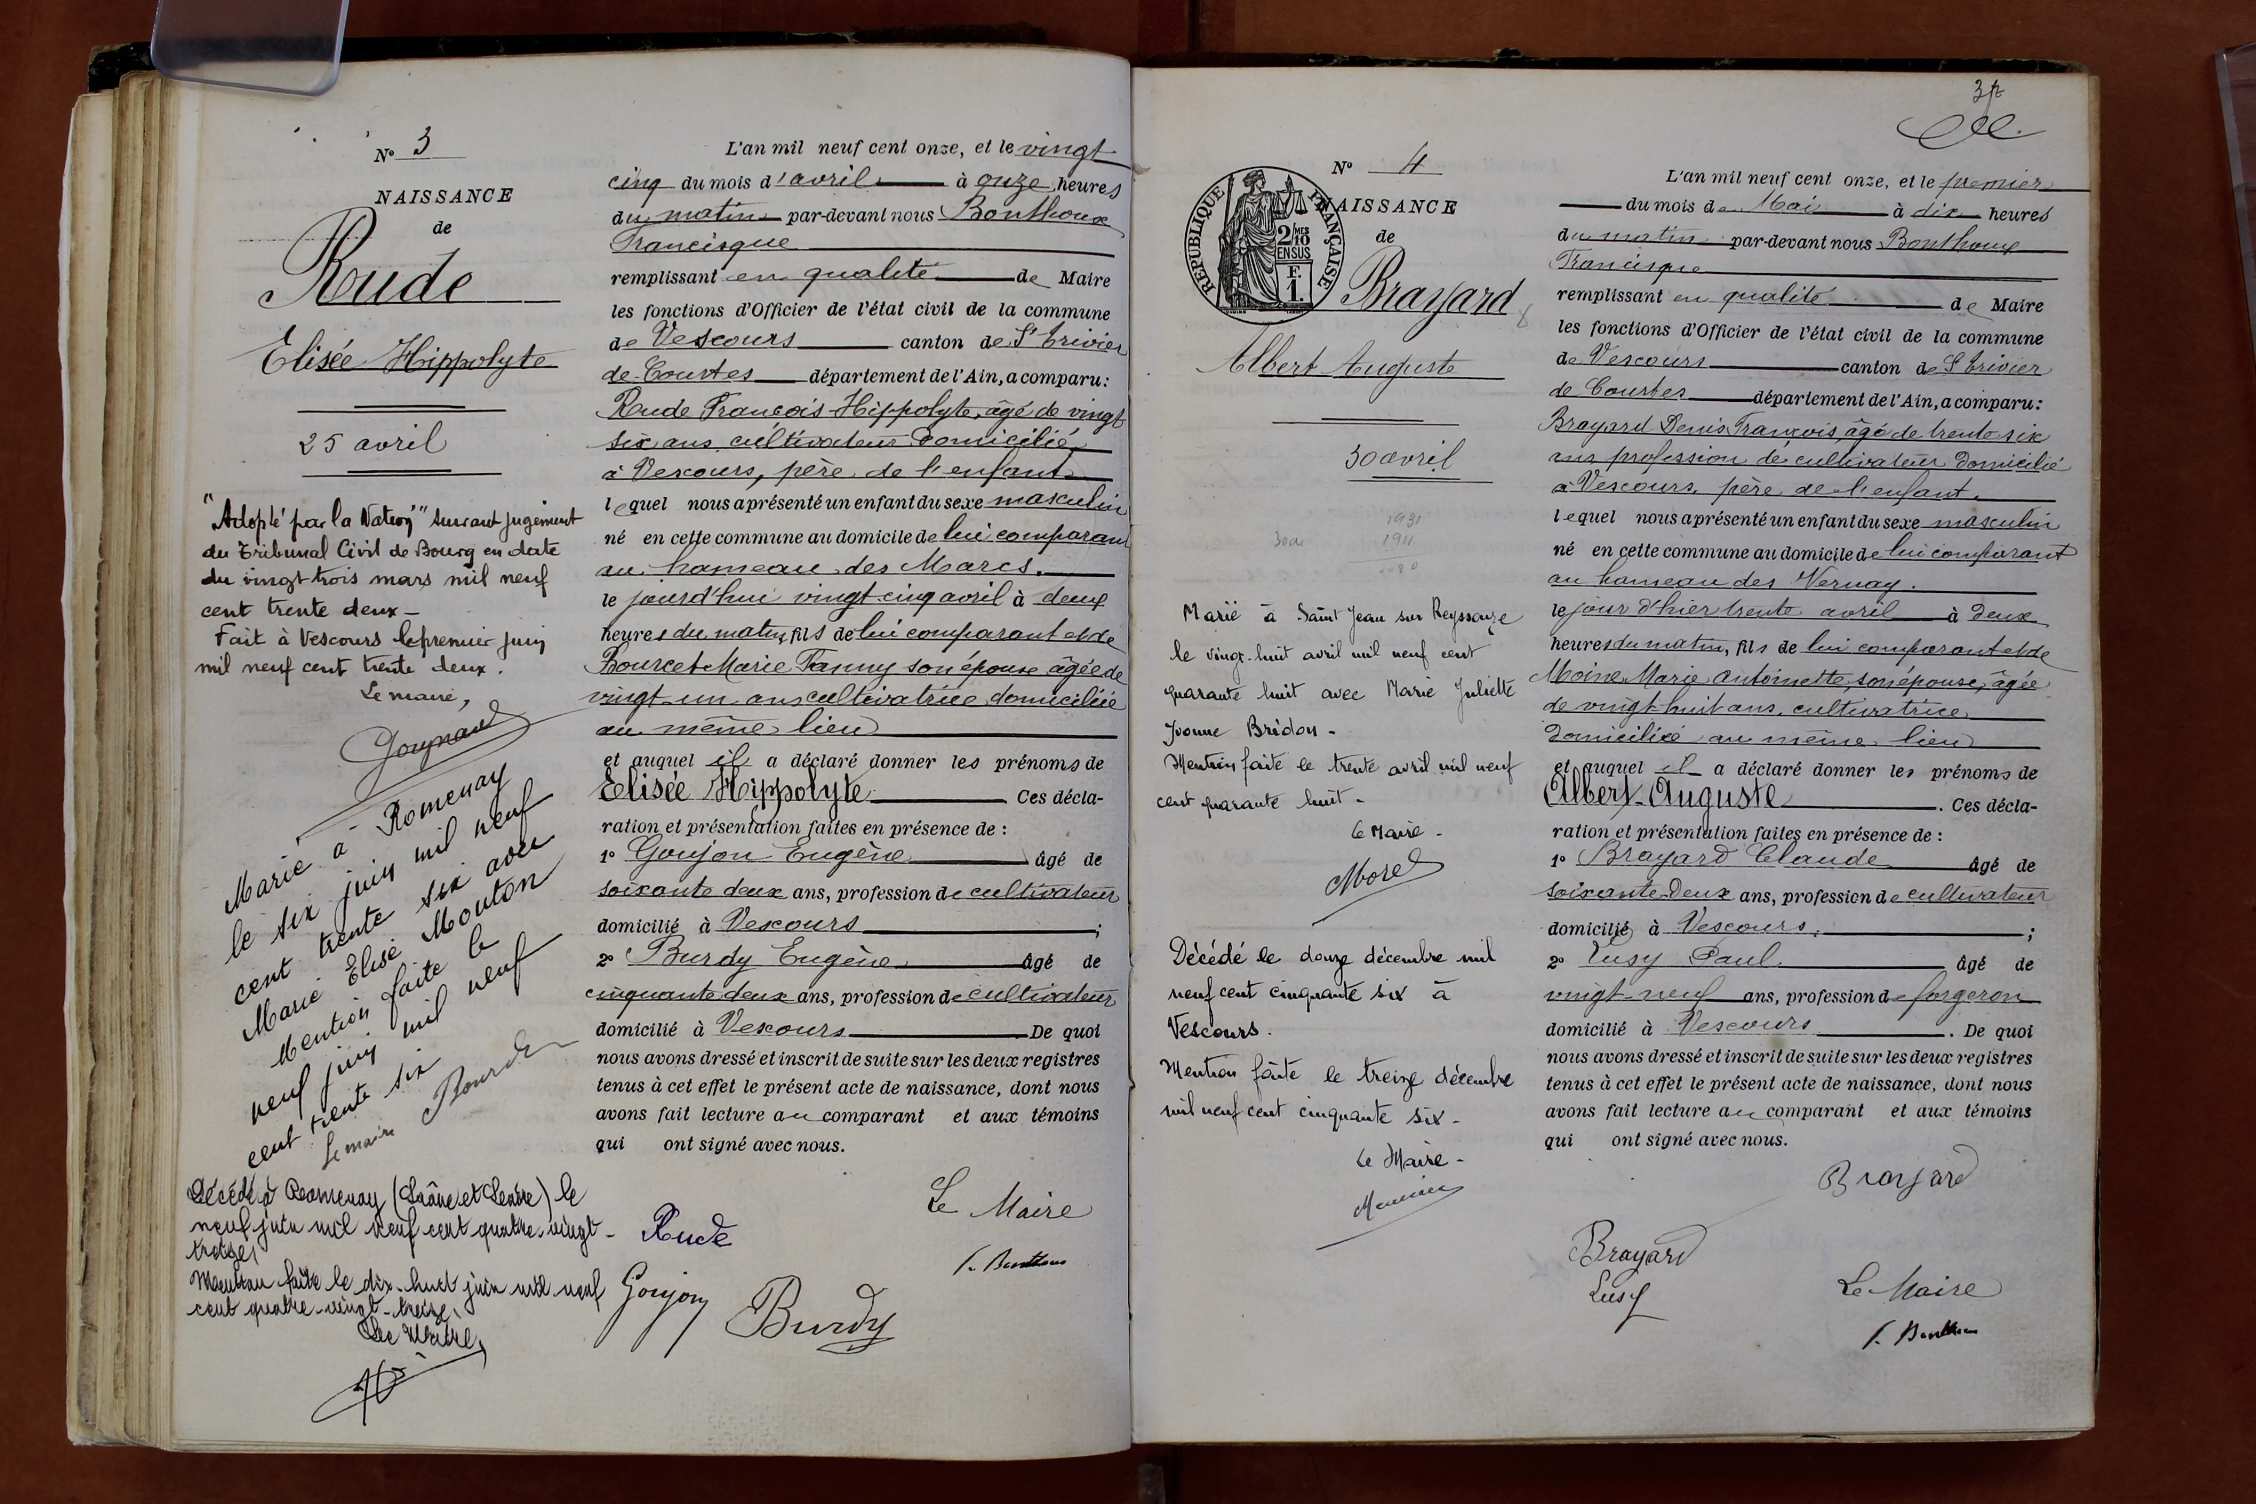 N° 3
NAISSANCE
de
Rude
Elisée Hippolyte
25 avril
"Adopté par la Nation" suivant jugement
du Tribunal Civil de Bourg en date
du vingt-trois mars mil neuf
cent trente deux -
Fait à Vescours le premier juin
mil neuf cent trente deux.
Le maire,
Marié à Romenay
le six juin mil neuf
cent trente six avec
Marie Elise Mouton
Mention faite le
neuf juin mil neuf
cent trente six
Le maire
Décédé à Romenay (Saône et Loire) le
neuf juin mil neuf cent quatre-vingt-
treize,
Mention faite le dix-huit juin mil neuf
cent quatre-vingt-treize,
Le Maire,
L'an mil neuf cent onze, et le vingt
cinq du mois d'avril à onze heures
du matin par-devant nous Bonthoux
Francisque
remplissant en qualité de Maire
les fonctions d'Officier de l'état civil de la commune
de Vescours canton de St Trivier
de Courtes département de l'Ain, a comparu:
Rude François Hippolyte, âgé de vingt
six ans cultivateur domicilié
à Vescours, père de l'enfant
lequel nous a présenté un enfant du sexe masculin
né en cette commune au domicile de lui comparant
au hameau des Marcs.
le jourd'hui vingt cinq avril à deux
heures du matin, fils de lui comparant et de
Bourcet Marie Fanny son épouse âgée de
vingt un ans cultivatrice domiciliée
au même lieu
et auquel il a déclaré donner les prénoms de
Elisée Hippolyte. Ces décla-
ration et présentation faites en présence de :
1° Goujon Eugène âgé de
soixante deux ans, profession de cultivateur
domicilié à Vescours ;
2° Burdy Eugène âgé de
cinquante deux ans, profession de cultivateur
domicilié à Vescours De quoi
nous avons dressé et inscrit de suite sur les deux registres
tenus à cet effet le présent acte de naissance, dont nous
avons fait lecture au comparant et aux témoins
qui ont signé avec nous.
Le Maire
Rude
Goujon
Burdy
N° 4
NAISSANCE
de
RÉPUBLIQUE FRANÇAISE
2/10 EN SUS
F. 1.
Brayard
Albert Auguste
30 avril
1931
1911
Marié à Saint Jean sur Reyssouze
le vingt-huit avril mil neuf cent
quarante huit avec Marie Juliette
Yvonne Brédon -
Mention faite le trente avril mil neuf
cent quarante huit -
Le Maire -
Morel
Décédé le douze décembre mil
neuf cent cinquante six à
Vescours.
Mention faite le treize décembre
mil neuf cent cinquante six -
Le Maire -
L'an mil neuf cent onze, et le premier
du mois de Mai à dix heures
du matin par-devant nous Bonthoux
Francisque
remplissant en qualité de Maire
les fonctions d'Officier de l'état civil de la commune
de Vescours canton de St Trivier
de Courtes département de l'Ain, a comparu:
Brayard Denis François, âgé de trente six
ans profession de cultivateur domicilié
à Vescours, père de l'enfant.
lequel nous a présenté un enfant du sexe masculin
né en cette commune au domicile de lui comparant
au hameau des Vernay.
le jour d'hier trente avril à deux
heures du matin, fils de lui comparant et de
Moine Marie Antoinette, son épouse, âgée
de vingt-huit ans, cultivatrice
domiciliée au même lieu
et auquel il a déclaré donner les prénoms de
Albert-Auguste. Ces décla-
ration et présentation faites en présence de :
1° Brayard Claude âgé de
soixante-deux ans, profession de cultivateur
domicilié à Vescours, ;
2° Lusy Paul âgé de
vingt-neuf ans, profession de forgeron
domicilié à Vescours. De quoi
nous avons dressé et inscrit de suite sur les deux registres
tenus à cet effet le présent acte de naissance, dont nous
avons fait lecture au comparant et aux témoins
qui ont signé avec nous.
Brayard
Brayard
Lusy
Le Maire